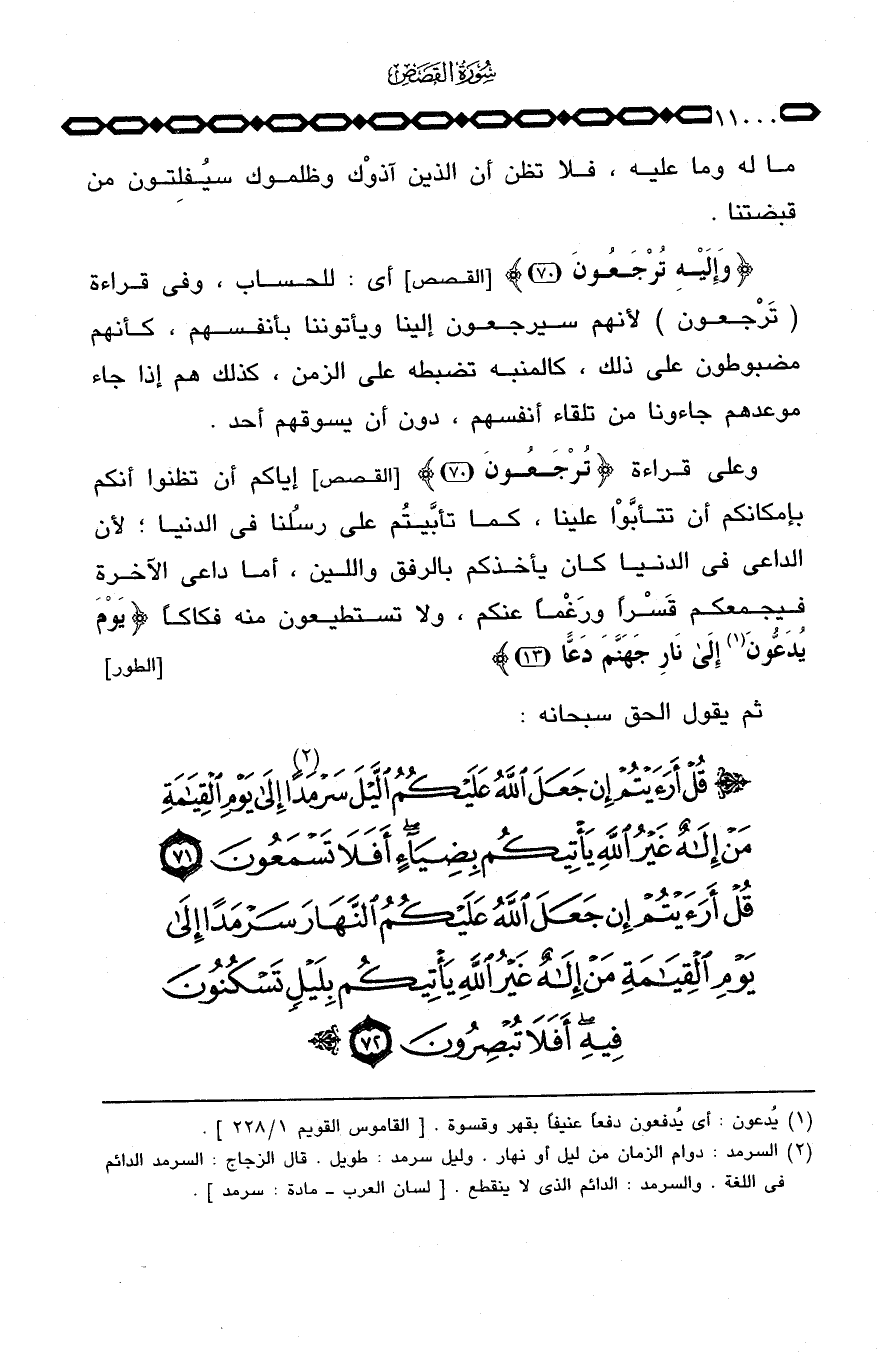 سُورَةُ القَصَصِ
١١٠٠٠
ما له وما عليه ، فلا تظن أن الذين آذوْك وظلموك سيُفلِتون من
قبضتنا .
﴿ وَإِلَيْهِ تُرْجَعُونَ (٧٠) ﴾ [القصص] أى : للحساب ، وفى قراءة
( تَرْجعون ) لأنهم سيرجعون إلينا ويأتوننا بأنفسهم ، كأنهم
مضبوطون على ذلك ، كالمنبه تضبطه على الزمن ، كذلك هم إذا جاء
موعدهم جاءونا من تلقاء أنفسهم ، دون أن يسوقهم أحد .
وعلى قراءة ﴿ تُرْجَعُونَ (٧٠) ﴾ [القصص] إياكم أن تظنوا أنكم
بإمكانكم أن تتأبَّوْا علينا ، كما تأبَّيتُم على رسلُنا فى الدنيا ؛ لأن
الداعى فى الدنيا كان يأخذكم بالرفق واللين ، أما داعى الآخرة
فيجمعكم قَسْراً ورَغْماً عنكم ، ولا تستطيعون منه فكاكاً ﴿ يَوْمَ
يُدَعُّونَ(١) إِلَىٰ نَارِ جَهَنَّمَ دَعًّا (١٣) ﴾ [الطور]
ثم يقول الحق سبحانه :
﴿ قُلْ أَرَءَيْتُمْ إِن جَعَلَ ٱللَّهُ عَلَيْكُمُ ٱلَّيْلَ سَرْمَدًا(٢) إِلَىٰ يَوْمِ ٱلْقِيَٰمَةِ
مَنْ إِلَٰهٌ غَيْرُ ٱللَّهِ يَأْتِيكُم بِضِيَآءٍ ۖ أَفَلَا تَسْمَعُونَ (٧١)
قُلْ أَرَءَيْتُمْ إِن جَعَلَ ٱللَّهُ عَلَيْكُمُ ٱلنَّهَارَ سَرْمَدًا إِلَىٰ
يَوْمِ ٱلْقِيَٰمَةِ مَنْ إِلَٰهٌ غَيْرُ ٱللَّهِ يَأْتِيكُم بِلَيْلٍ تَسْكُنُونَ
فِيهِ ۖ أَفَلَا تُبْصِرُونَ (٧٢) ﴾
(١) يُدعون : أى يُدفعون دفعاً عنيفاً بقهر وقسوة . [ القاموس القويم ٢٢٨/١ ] .
(٢) السرمد : دوام الزمان من ليل أو نهار . وليل سرمد : طويل . قال الزجاج : السرمد الدائم
فى اللغة . والسرمد : الدائم الذى لا ينقطع . [ لسان العرب – مادة : سرمد ] .